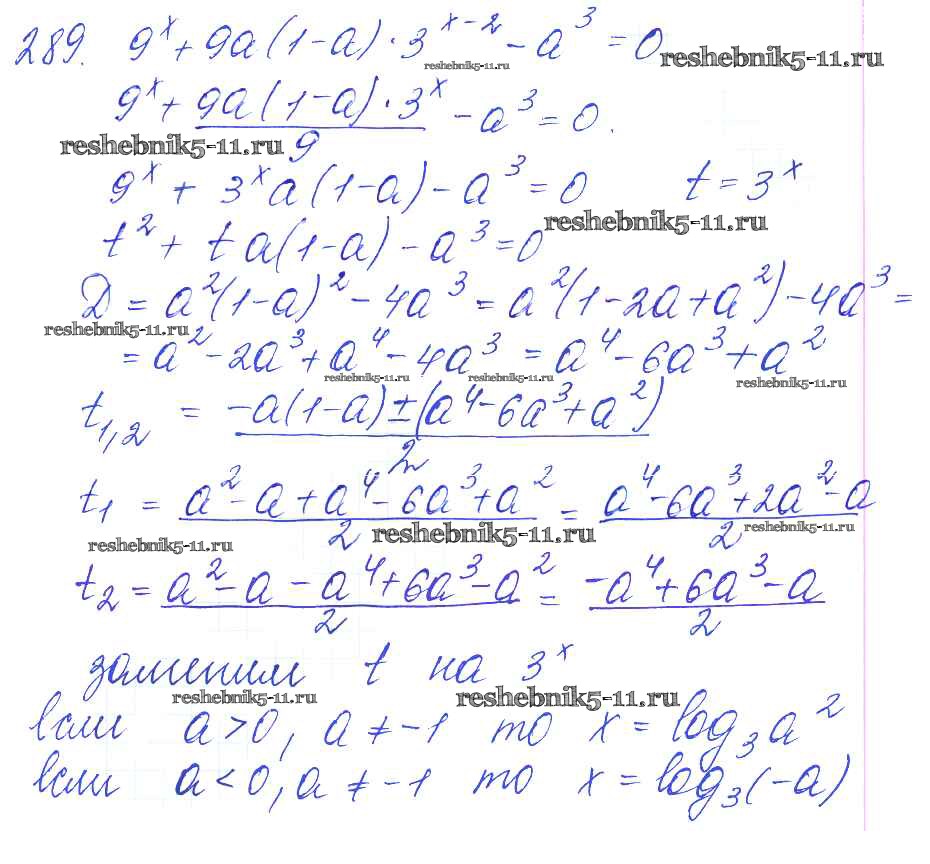 289. 9^x + 9a(1-a)·3^(x-2) - a^3 = 0
reshebnik5-11.ru reshebnik5-11.ru
9^x + 9a(1-a)·3^x / 9 - a^3 = 0.
reshebnik5-11.ru
9^x + 3^x a(1-a) - a^3 = 0 t = 3^x
reshebnik5-11.ru
t^2 + ta(1-a) - a^3 = 0
Д = a^2(1-a)^2 - 4a^3 = a^2(1-2a+a^2) - 4a^3 =
reshebnik5-11.ru
= a^2 - 2a^3 + a^4 - 4a^3 = a^4 - 6a^3 + a^2
reshebnik5-11.ru reshebnik5-11.ru reshebnik5-11.ru
t_1,2 = (-a(1-a) ± (a^4 - 6a^3 + a^2)) / 2
t_1 = (a^2 - a + a^4 - 6a^3 + a^2) / 2 = (a^4 - 6a^3 + 2a^2 - a) / 2
reshebnik5-11.ru reshebnik5-11.ru reshebnik5-11.ru
t_2 = (a^2 - a - a^4 + 6a^3 - a^2) / 2 = (-a^4 + 6a^3 - a) / 2
заменим t на 3^x
reshebnik5-11.ru reshebnik5-11.ru
если a > 0, a ≠ -1 то x = log_3 a^2
если a < 0, a ≠ -1 то x = log_3 (-a)